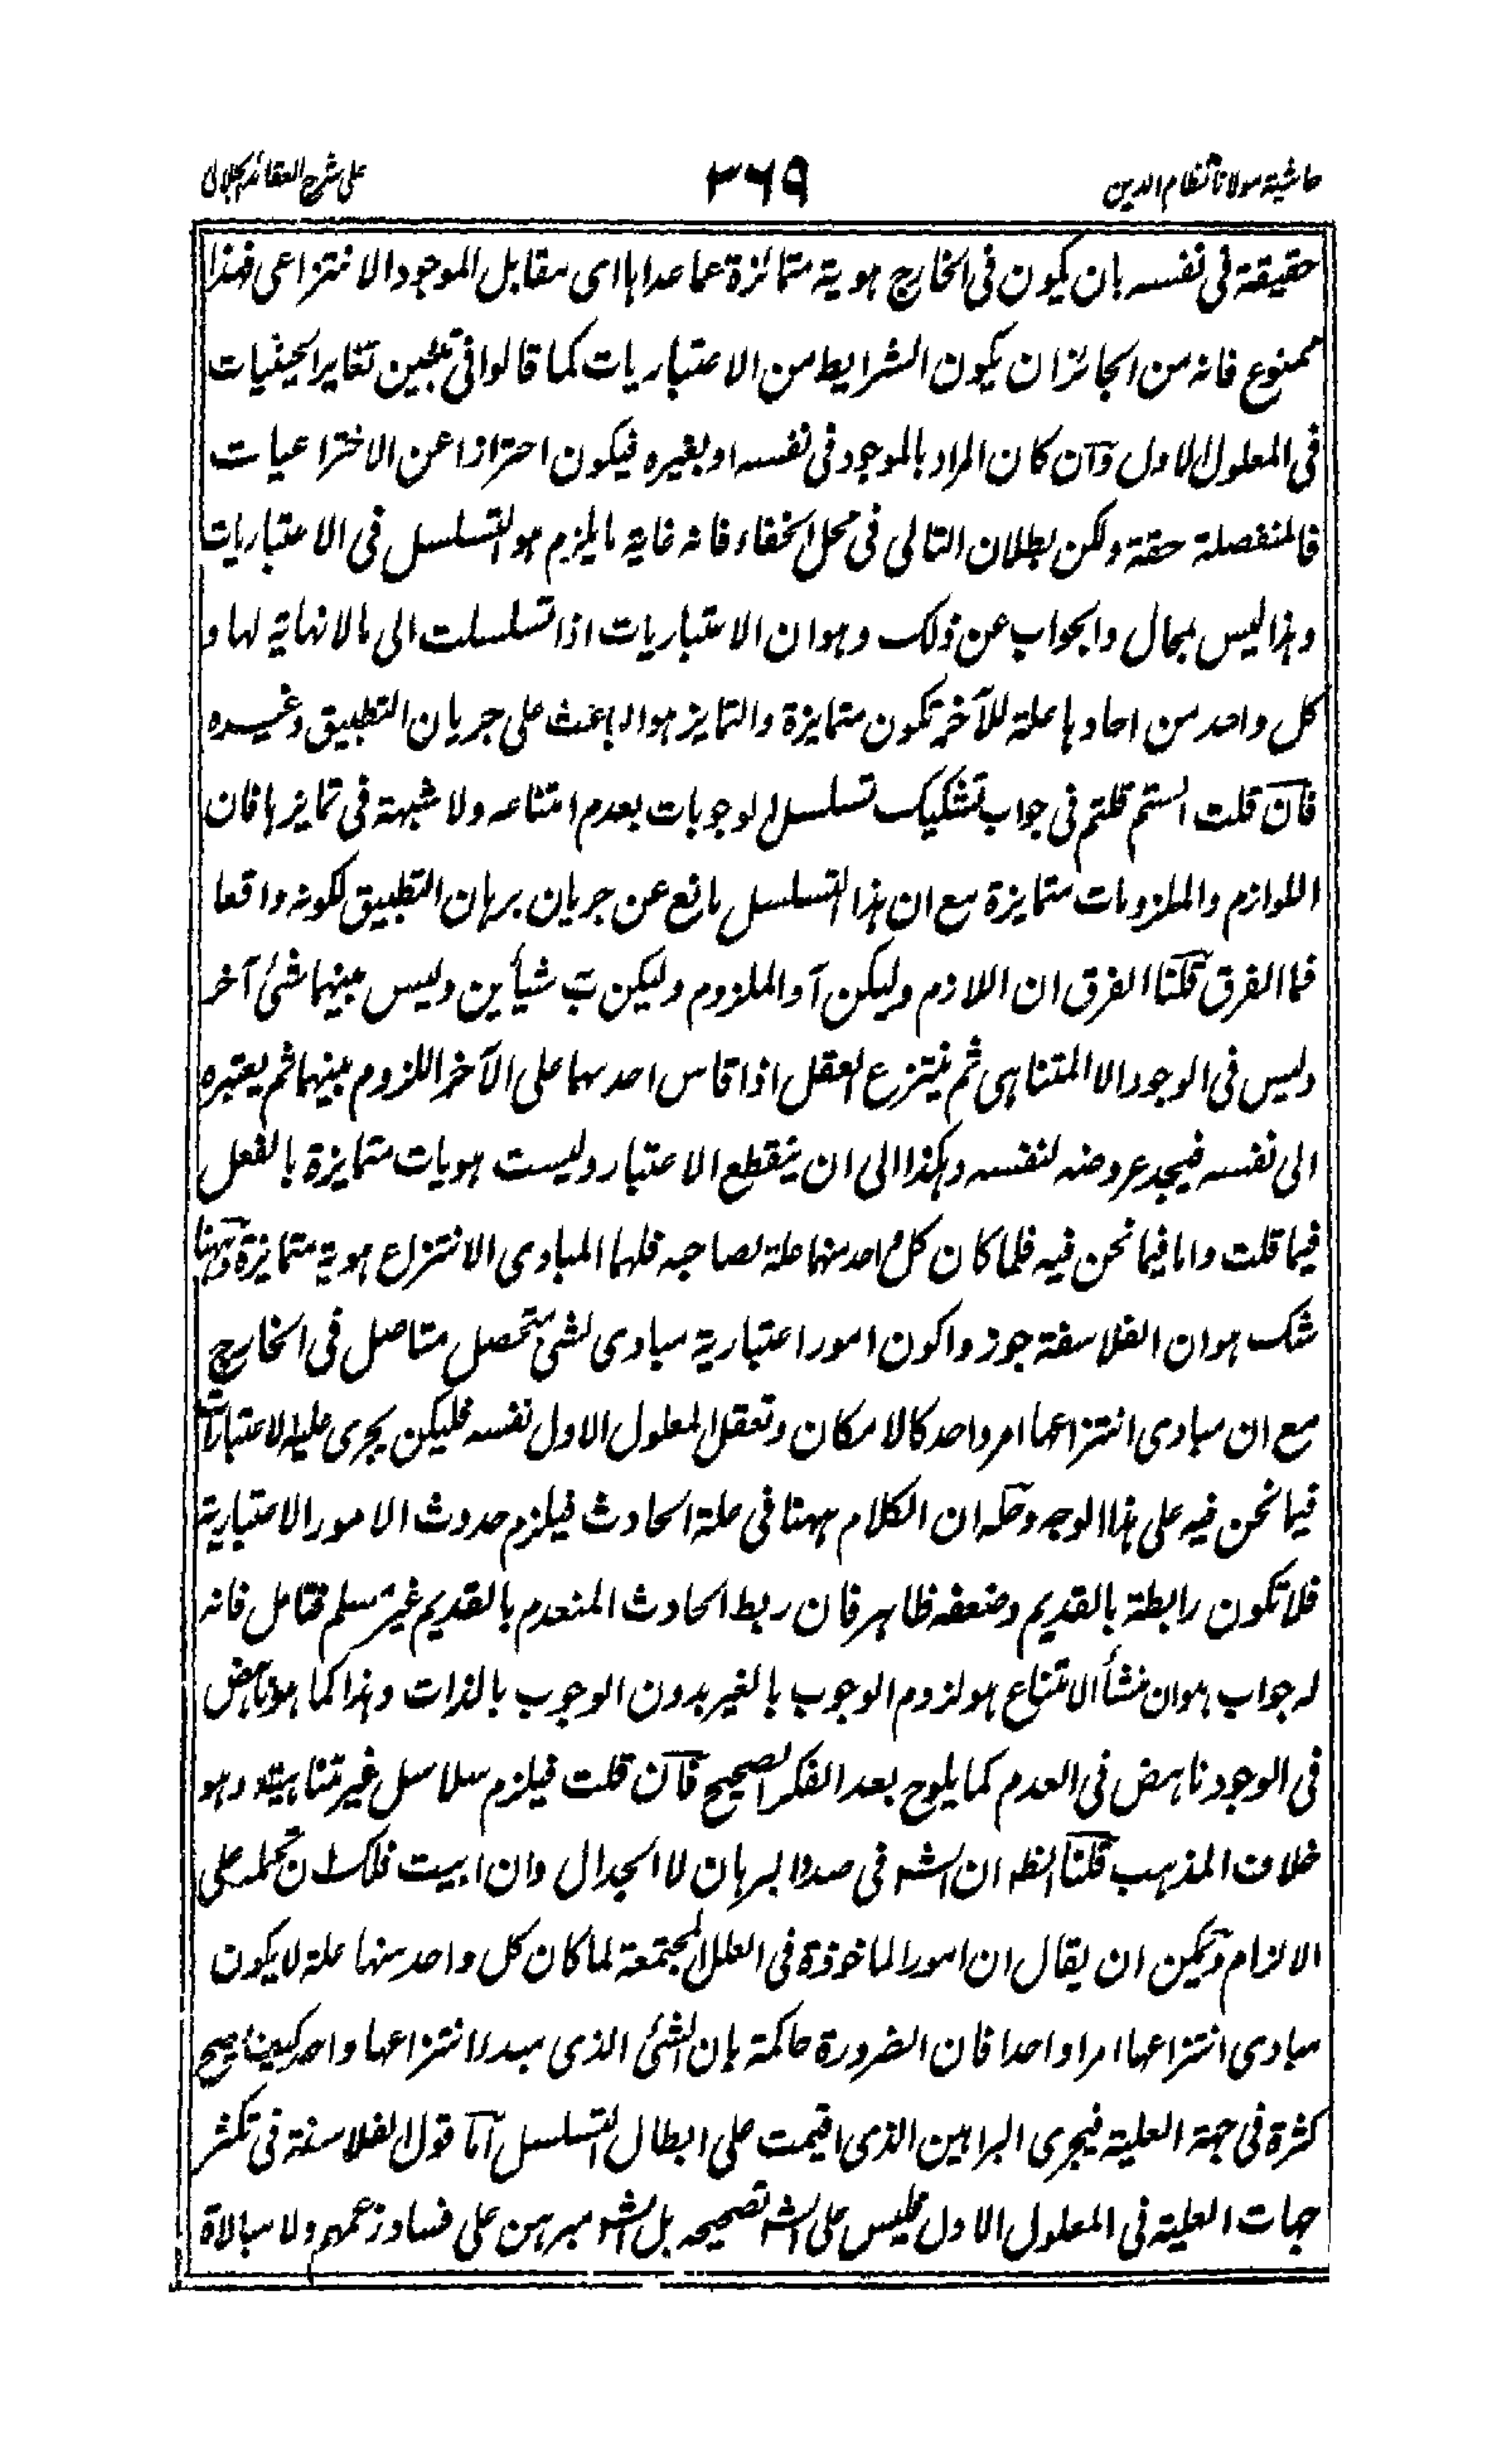 حاشية مولانا نظام الدين
٣٦٩
على شرح العقائد الجلالي
حقيقة فى نفسه بان يكون فى الخارج هوية متمائزة عما عداها اى مقابل الموجود الانتزاعى فهذا
ممنوع فانه من الجائز ان يكون الشرايط من الاعتباريات كما قالوا فى تبيين تغاير الحيثيات
فى المعلول الاول وان كان المراد بالموجود فى نفسه او بغيره فيكون احترازا عن الاختراعيات
فالمنفصلة حقة ولكن بطلان التالى فى محل الخفاء فانه غاية ما يلزم هو التسلسل فى الاعتباريات
وهذا ليس بمحال والجواب عن ذلك وهو ان الاعتباريات اذا تسلسلت الى مالانهاية لها و
كل واحد من احادها علة للآخر تكون متمايزة والتمايز هو الباعث على جريان التطبيق وغيره
فان قلت الستم قلتم فى جواب تشكيك تسلسل الوجوبات بعدم امتناعه ولا شبهة فى تمايزها فان
اللوازم والملزومات متمايزة مع ان هذا التسلسل مانع عن جريان برهان التطبيق لكونه واقعا
فما الفرق قلنا الفرق ان اللازم وليكن آ والملزوم وليكن ب شيأين وليس بينهما شئ آخر
وليس فى الوجود الا المتناهى ثم ينتزع العقل اذا قاس احدهما على الآخر اللزوم بينهما ثم يعتبره
الى نفسه فيجد عروضه لنفسه وهكذا الى ان ينقطع الاعتبار وليست هويات متمايزة بالفعل
فيما قلت واما فيما نحن فيه فلما كان كل احد منها علة لصاحبه فلهما المبادى الانتزاع هوية متمايزة وههنا
شك هو ان الفلاسفة جوزوا كون امور اعتبارية مبادى لشئ متحصل متاصل فى الخارج
مع ان مبادى انتزاعها امر واحد كالامكان وتعقل المعلول الاول نفسه فليكن يجرى علية الاعتباريات
فيما نحن فيه على هذا الوجه وحله ان الكلام ههنا فى علة الحادث فيلزم حدوث الامور الاعتبارية
فلا تكون رابطة بالقديم وضعفه ظاهر فان ربط الحادث المنعدم بالقديم غير مسلم فتامل فانه
له جواب هو ان منشأ الامتناع هو لزوم الوجوب بالغير بدون الوجوب بالذات وهذا كما هو ناهض
فى الوجود ناهض فى العدم كما يلوح بعد الفكر الصحيح فان قلت فيلزم سلاسل غير متناهية وهو
خلاف المذهب قلنا الظ ان الش فى صدد البرهان لا الجدال وان ابيت فلك ان تحمله على
الالزام ويمكن ان يقال ان امور الماخوذة فى العلل المجتمعة لما كان كل واحد منها علة لا يكون
مبادى انتزاعها امرا واحدا فان الضرورة حاكمة بان الشئ الذى مبدء انتزاعها واحد كيف يصح
كثرة فى جهة العلية فيجرى البراهين الذى اقيمت على ابطال التسلسل اما قول الفلاسفة فى تكثر
جهات العلية فى المعلول الاول فليس على الش تصحيحه بل الش مبرهن على فساد زعمهم ولا مبالاة